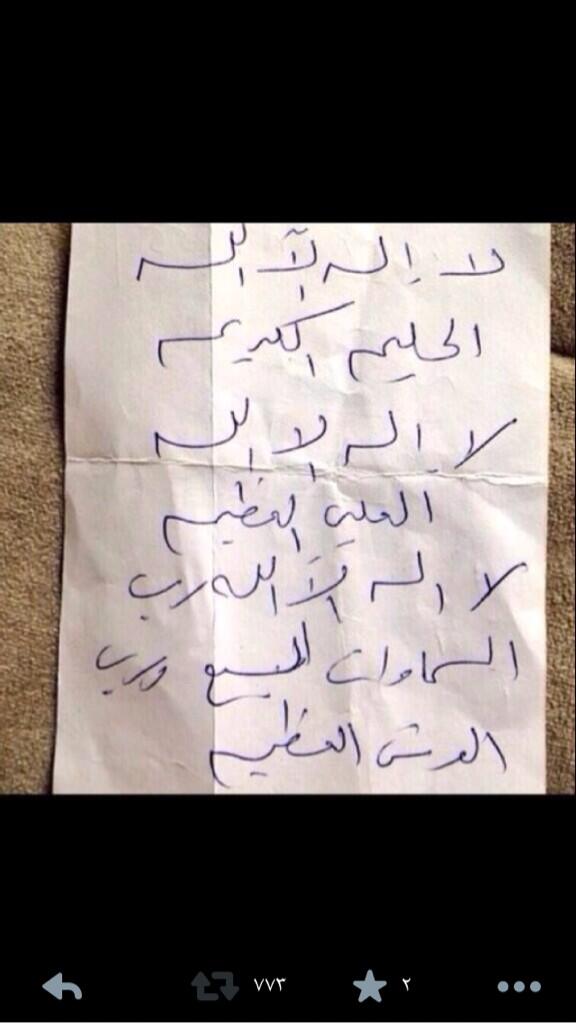 لا إله إلّا الله
الحليم الكريم
لا اله الا الله
العلي العظيم
لا اله الّا الله رب
السماوات السبع ورب
العرش العظيم
٧٧٣ ٢